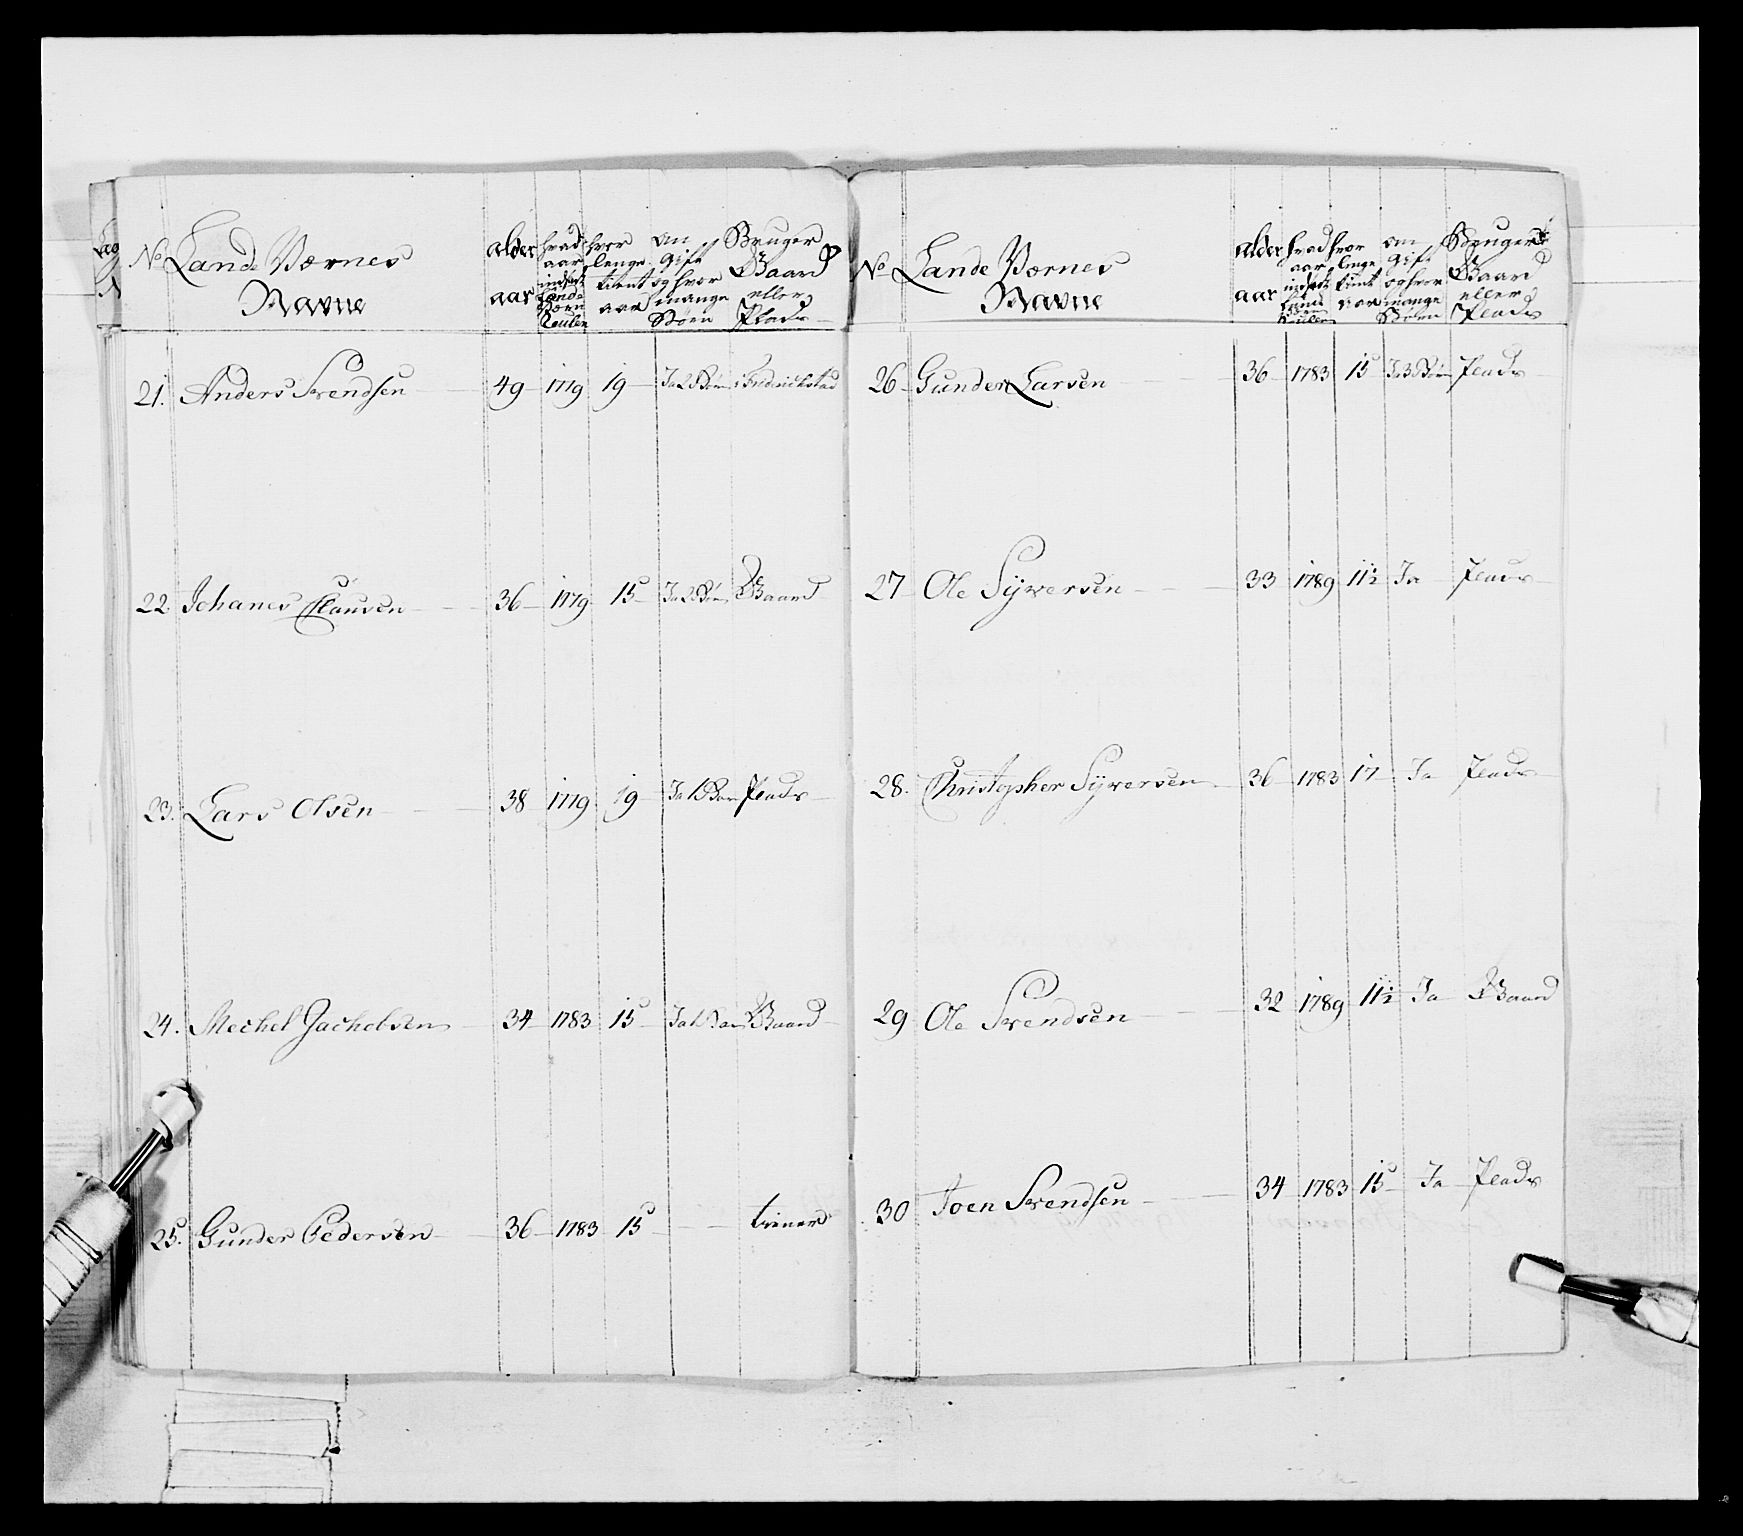 No Lande Vornes Navne alder aar hvad aar indsat Lande Vorn Roulen hvor lenge tient aar om Gift og hvor mange Børn Bruger Gaard eller Plads
21. Anders Svendsen 49 1779 19 Ja 2 Børn i Fredrichstad
22. Johanes Clausen 36 1779 15 Ja 2 Børn Gaard
23. Lars Olsen 38 1779 19 Ja 1 Barn Plads
24. Mechel Jachobsen 34 1783 15 Ja 1 Barn Gaard
25. Gunder Pedersen 36 1783 15 tiener
No Lande Vornes Navne alder aar hvad aar indsat Land Vorn Rullen hvor lenge tient aar om Gift og hvor mange Børn Bruger Gaard eller Plads
26 Gunder Larsen 36 1783 15 Ja 3 Børn Plads
27 Ole Syversen 33 1789 11½ Ja Plads
28. Christopher Syversen 36 1783 17 Ja Plads
29 Ole Svendsen 32 1789 11½ Ja Gaard
30 Joen Svendsen 34 1783 15 Ja Plads